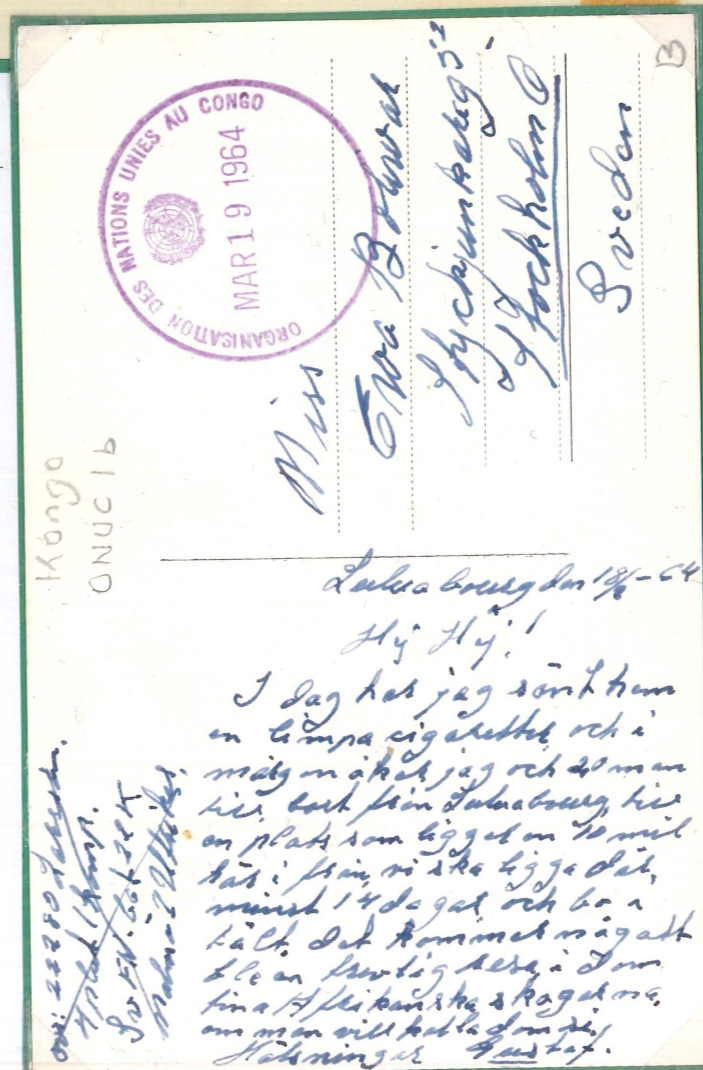 ORGANISATION DES NATIONS UNIES AU CONGO
MAR 19 1964
B
Kongo
ONUC 16
Miss
Ewa
Styckjunkareg 5²
Stockholm Ö
Sveden
Luluabourg den 18/3 - 64
Hej Hej!
I dag har jag sänt hem
en limpa cigaretter och i
märgon åker jag och 20 man
till bort från Luluabourg till
en plats som ligger en 10 mil
här i från, vi ska ligga där
minst 14 dagar och bo i
tält. det kommer någ att
bli en trevlig resa, i dom
fina Afrikanska skogarna,
om man vill kalla dom så,
Hälsningar Gustaf.
avs: 22280
4 plut 1 komp.
Malmö 2 Utrikes.